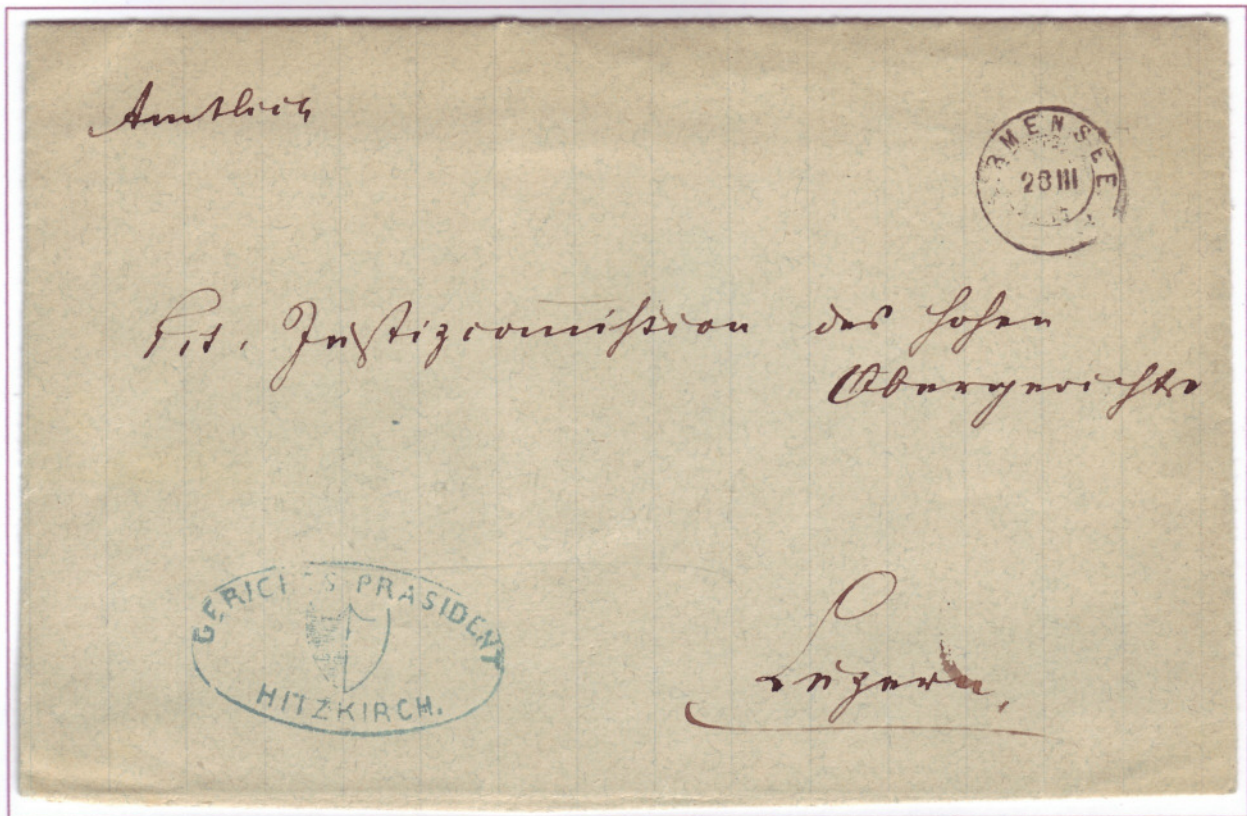 Amtlich
RMENSEE
28 III
Justizcommission des hohen
Obergerichts
GERICHTS PRÄSIDENT
HITZKIRCH.
Luzern,